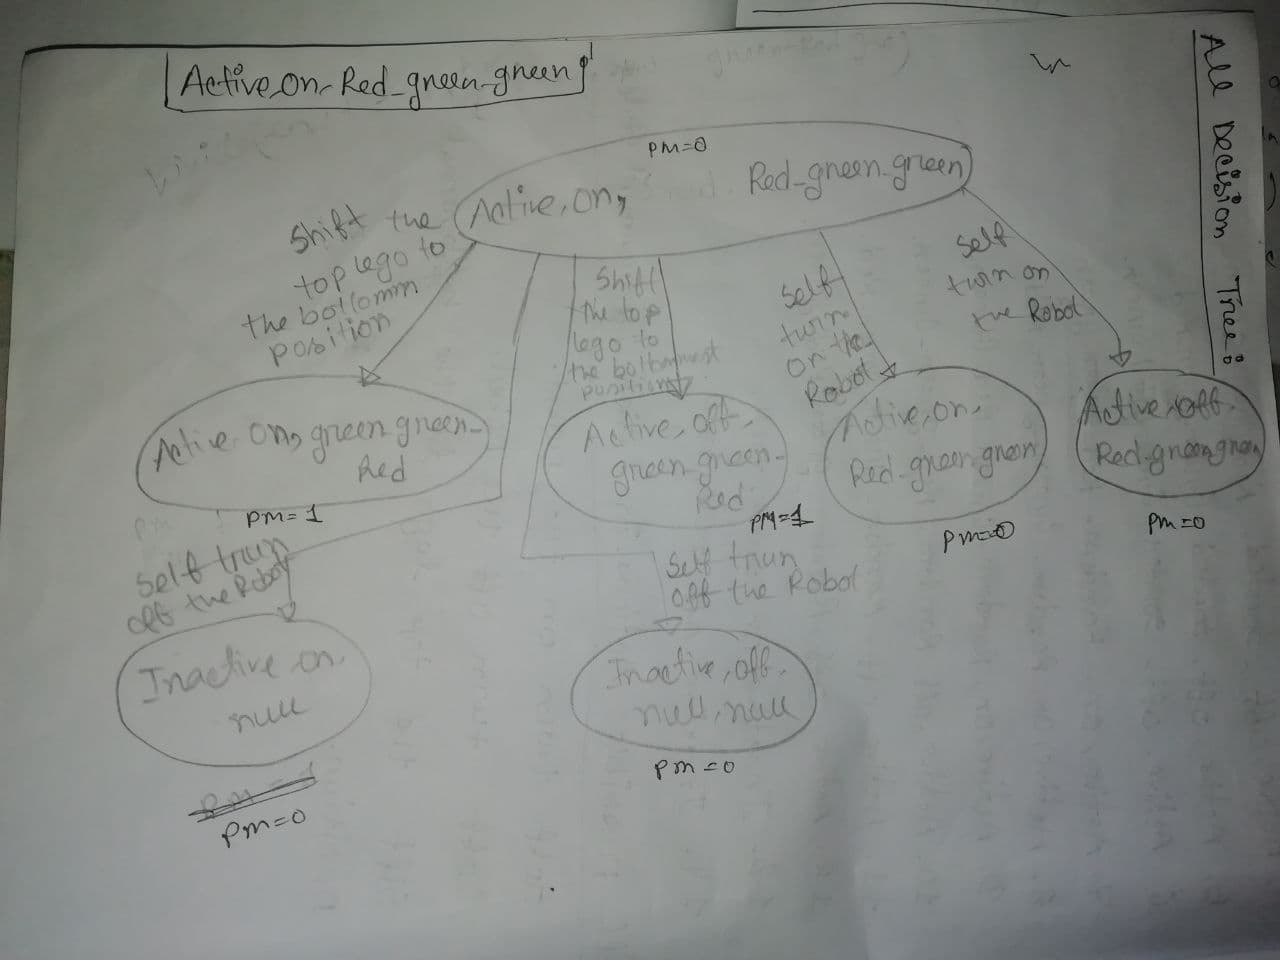 All Decision Tree:
Active, On, Red-green-green
PM=0
Active, on,
Red-green-green
Shift the
top lego to
the bottomm
position
Shift
the top
lego to
the bottommost
position
Self
turn
on the
Robot
Self
turn on
the Robot
Active, On, green green-
Red
PM=1
Active, off,
green green-
Red
PM=1
Active, on,
Red-green-green
PM=0
Active, off
Red-green green
PM=0
Self trun
off the Robot
Self trun
off the Robot
Inactive, on,
null
Inactive, off,
null, null
PM=0
PM=0